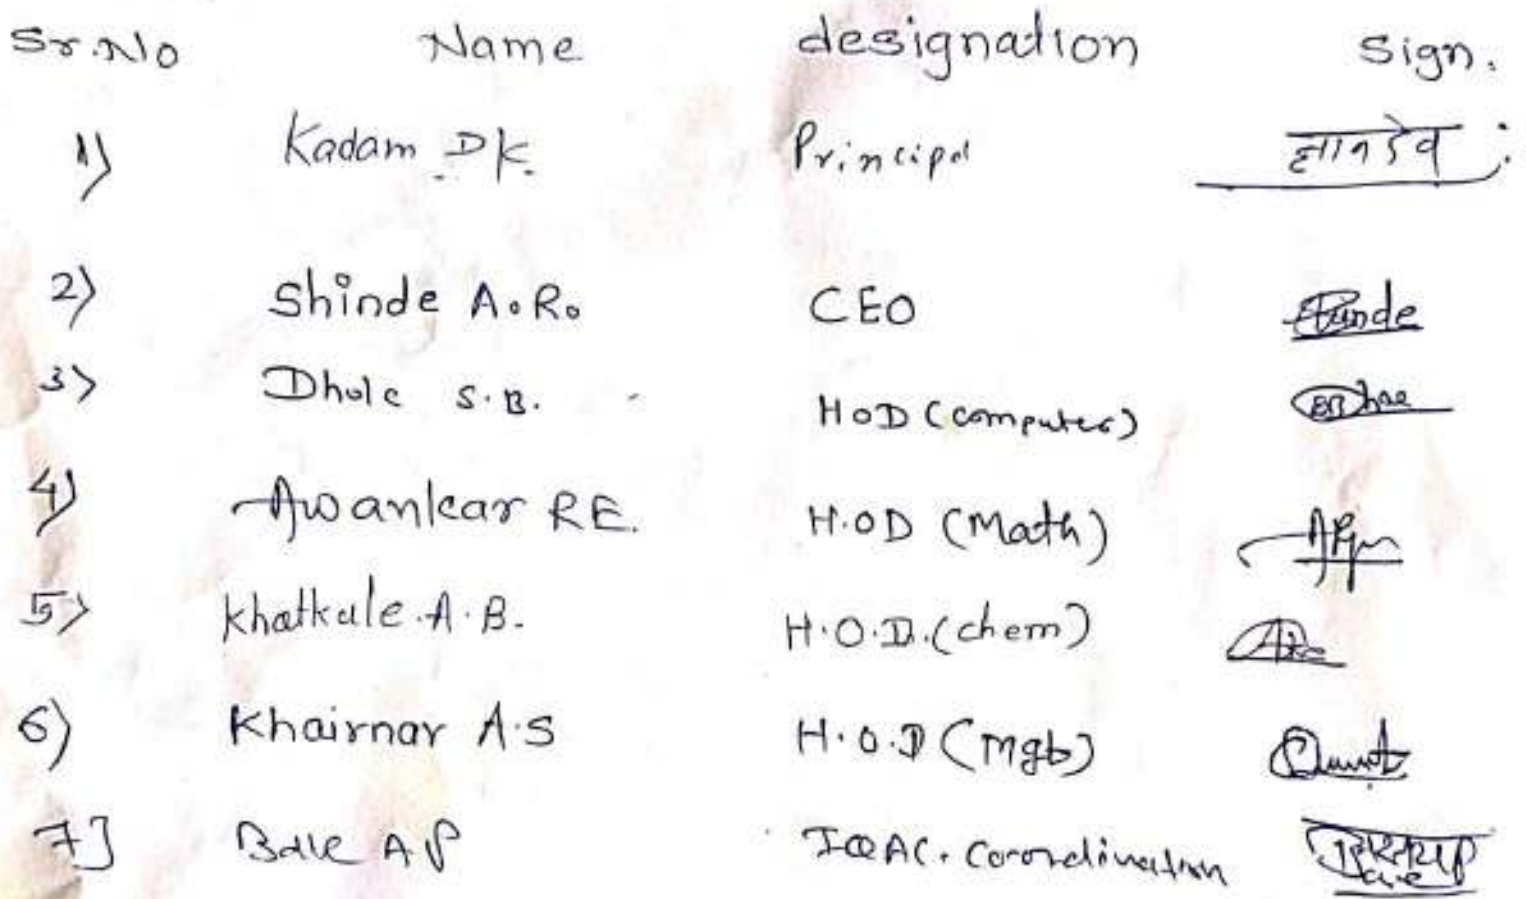 Sr.No Name designation Sign.
1) Kadam D K. Principal ज्ञानदेव
2) Shinde A.R. CEO Shinde
3) Dhole S.B. HOD (computer)
4) Awankar R E. H.OD (Math)
5) Khatkale.A.B. H.O.D.(chem)
6) Khairnar A.S H.O.D (Mgt)
7] Bale A P IQAC. Coordination